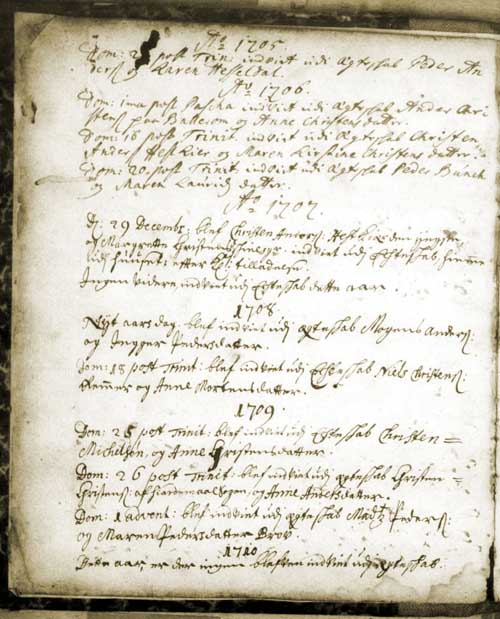 Ao 1705.
Dom: 2 post Trin: indviet udi Ægteskab Peder An
ders: og Karen Hesseldal.
Ao 1706.
Dom: 1ma post Pascha indviet udi Ægteskab Anders Chri
stens: paa og Anne Christensdatter.
Dom: 18 post Trinit: indviet udi Ægteskab Christen
Anders: Hestkier og Maren Kirstine Christens datter.
Dom: 20 post Trinit. indviet udi Ægteskab Peder Bunck
og Maren Laurids datter.
Ao 1707.
D: 29 Decembr: blef Christen Anders: Hestkier den yngste
og Margrette Christensdatter indviet udj Ecteskab hiemme
udj huuset: efter tilladelse.
Ingen videre indviet udj Ecteskab dette aar.
1708.
Nyt aars dag: blef indviet udj Egteskab Mogens Anders:
og Inger Pedersdatter.
Dom: 18 post Trinit: blef indviet udj Ecteskab Niels Christens:
og Anne Mortensdatter.
1709.
Dom: 25 post Trinit: blef indviet udj Ecteskab Christen =
Michelsøn, og Anne Christensdatter.
Dom: 26 post Trinit: blef indviet udj Egteskab Christen =
Christens: af Sogen, og Anne datter.
Dom: 1 advent: blef indviet udj Egteskab Madtz Peders:
og Maren Pedersdatter Brov.
1710
Dette aar er der ingen blefven indviet udj egteskab.